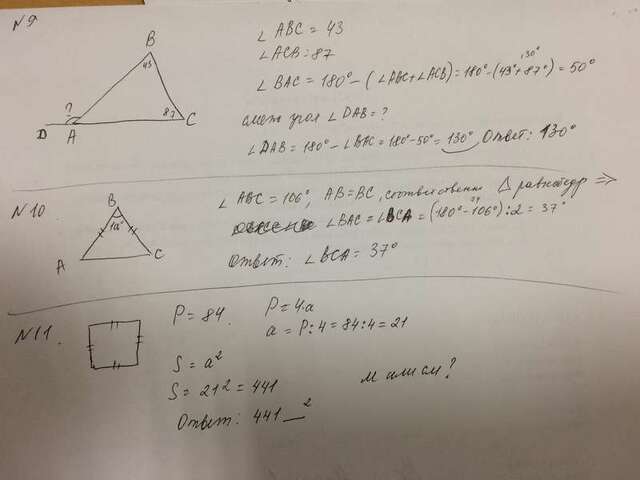 N 9
∠ABC = 43
∠ACB = 87
∠BAC = 180° - (∠ABC+∠ACB) = 180° - (43°+87°) = 50°
130°
угла ∠DAB = ?
∠DAB = 180° - ∠BAC = 180° - 50° = 130°, Ответ: 130°
D
A
?
B
43
87
C
N 10
A
B
C
106°
∠ABC = 106°, AB = BC, соответственно △ равнобедр ⇒
∠BAC = ∠BCA = (180° - 106°) : 2 = 37°
Ответ: ∠BCA = 37°
N 11.
P = 84. P = 4a
a = P : 4 = 84 : 4 = 21
S = a²
S = 21² = 441
м или см?
Ответ: 441 _ ²